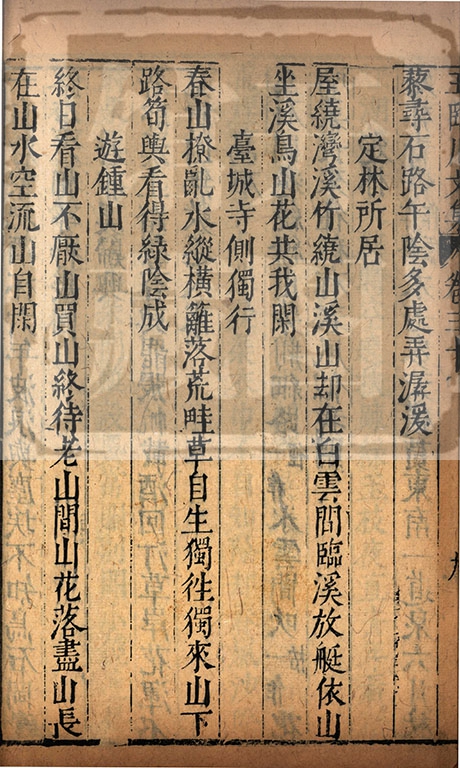 王臨川文集 卷三十
九
藜尋石路午陰多處弄潺湲
定林所居
屋繞灣溪竹繞山溪山却在白雲間臨溪放艇依山
坐溪鳥山花共我閑
臺城寺側獨行
春山撩亂水縱橫籬落荒畦草自生獨徃獨來山下
路筍輿看得綠陰成
遊鍾山
終日看山不厭山買山終待老山間山花落盡山長
在山水空流山自閑